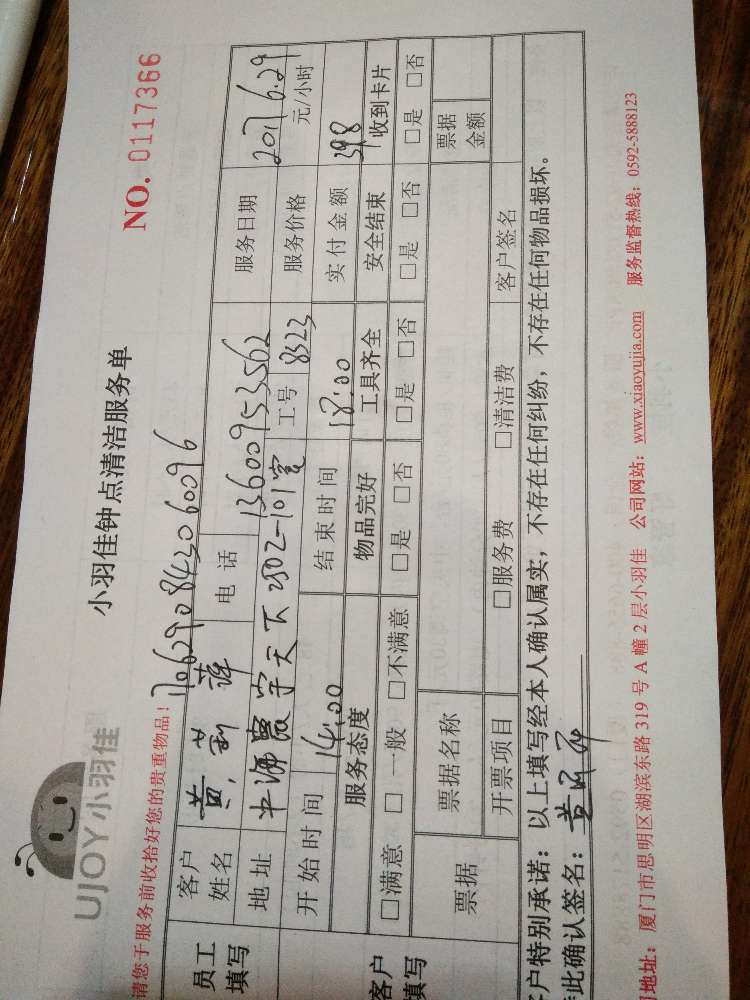 UJOY小羽佳
小羽佳钟点清洁服务单
NO. 0117366
请您于服务前收拾好您的贵重物品！
1706290842060096
员工填写
客户姓名 黄莉萍 电话 13600953562 服务日期 2017 6.29
地址 2802-101室 工号 8323 服务价格 元/小时
开始时间 14:00 结束时间 18:00 实付金额 398
客户填写
服务态度 物品完好 工具齐全 安全结束 收到卡片
□满意 □一般 □不满意 □是 □否 □是 □否 □是 □否 □是 □否
票据 票据名称 票据金额
开票项目 □服务费 □清洁费 客户签名
户特别承诺：以上填写经本人确认属实，不存在任何纠纷，不存在任何物品损坏。
此确认签名：
地址：厦门市思明区湖滨东路 319 号 A 幢 2 层小羽佳 公司网站：www.xiaoyujia.com 服务监督热线：0592-5888123